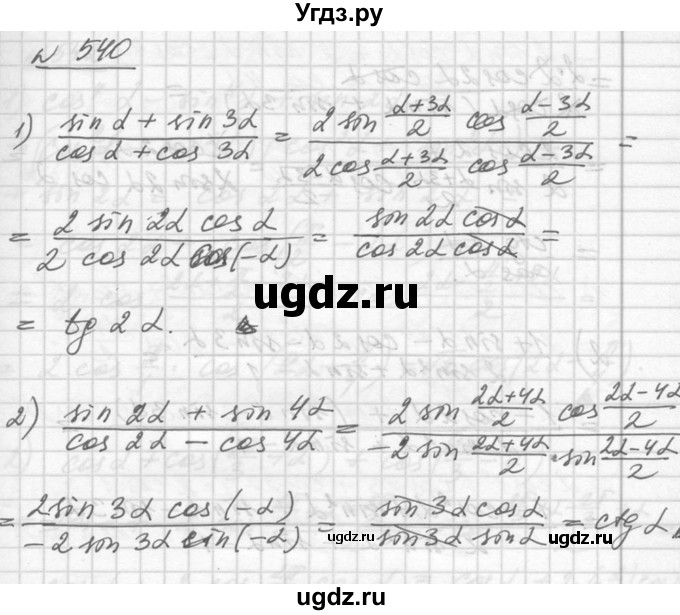 Угдз.ру
№ 540
1) (sin α + sin 3α)/(cos α + cos 3α) = (2 sin (α+3α)/2 cos (α-3α)/2)/(2 cos (α+3α)/2 cos (α-3α)/2) =
= (2 sin 2α cos α)/(2 cos 2α cos(-α)) = (sin 2α cos α)/(cos 2α cos α) =
ugdz.ru
= tg 2α.
2) (sin 2α + sin 4α)/(cos 2α - cos 4α) = (2 sin (2α+4α)/2 cos (2α-4α)/2)/(-2 sin (2α+4α)/2 · sin (2α-4α)/2)
= (2 sin 3α cos(-α))/(-2 sin 3α sin(-α)) = (sin 3α cos α)/(sin 3α sin α) = ctg α
ugdz.ru
ugdz.ru
ugdz.ru